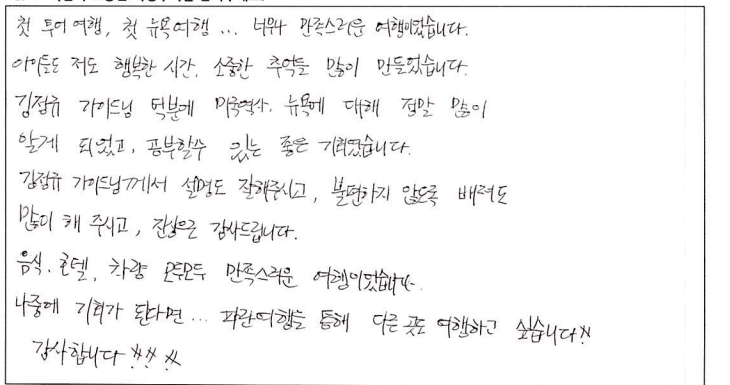 첫 투어여행, 첫 뉴욕여행 ... 너무나 만족스러운 여행이었습니다.
아이들도 저도 행복한 시간, 소중한 추억들 많이 만들었습니다.
김점유 가이드님 덕분에 미국역사, 뉴욕에 대해 정말 많이
알게 되었고, 공부할수 있는 좋은 기회였습니다.
김점유 가이드님께서 설명도 잘해주시고, 불편하지 않도록 배려도
많이 해 주시고, 진심으로 감사드립니다.
음식. 호텔, 차량 모두모두 만족스러운 여행이었습니다.
나중에 기회가 된다면... 파란여행을 통해 다른 곳도 여행하고 싶습니다!!
감사합니다 !!! !!